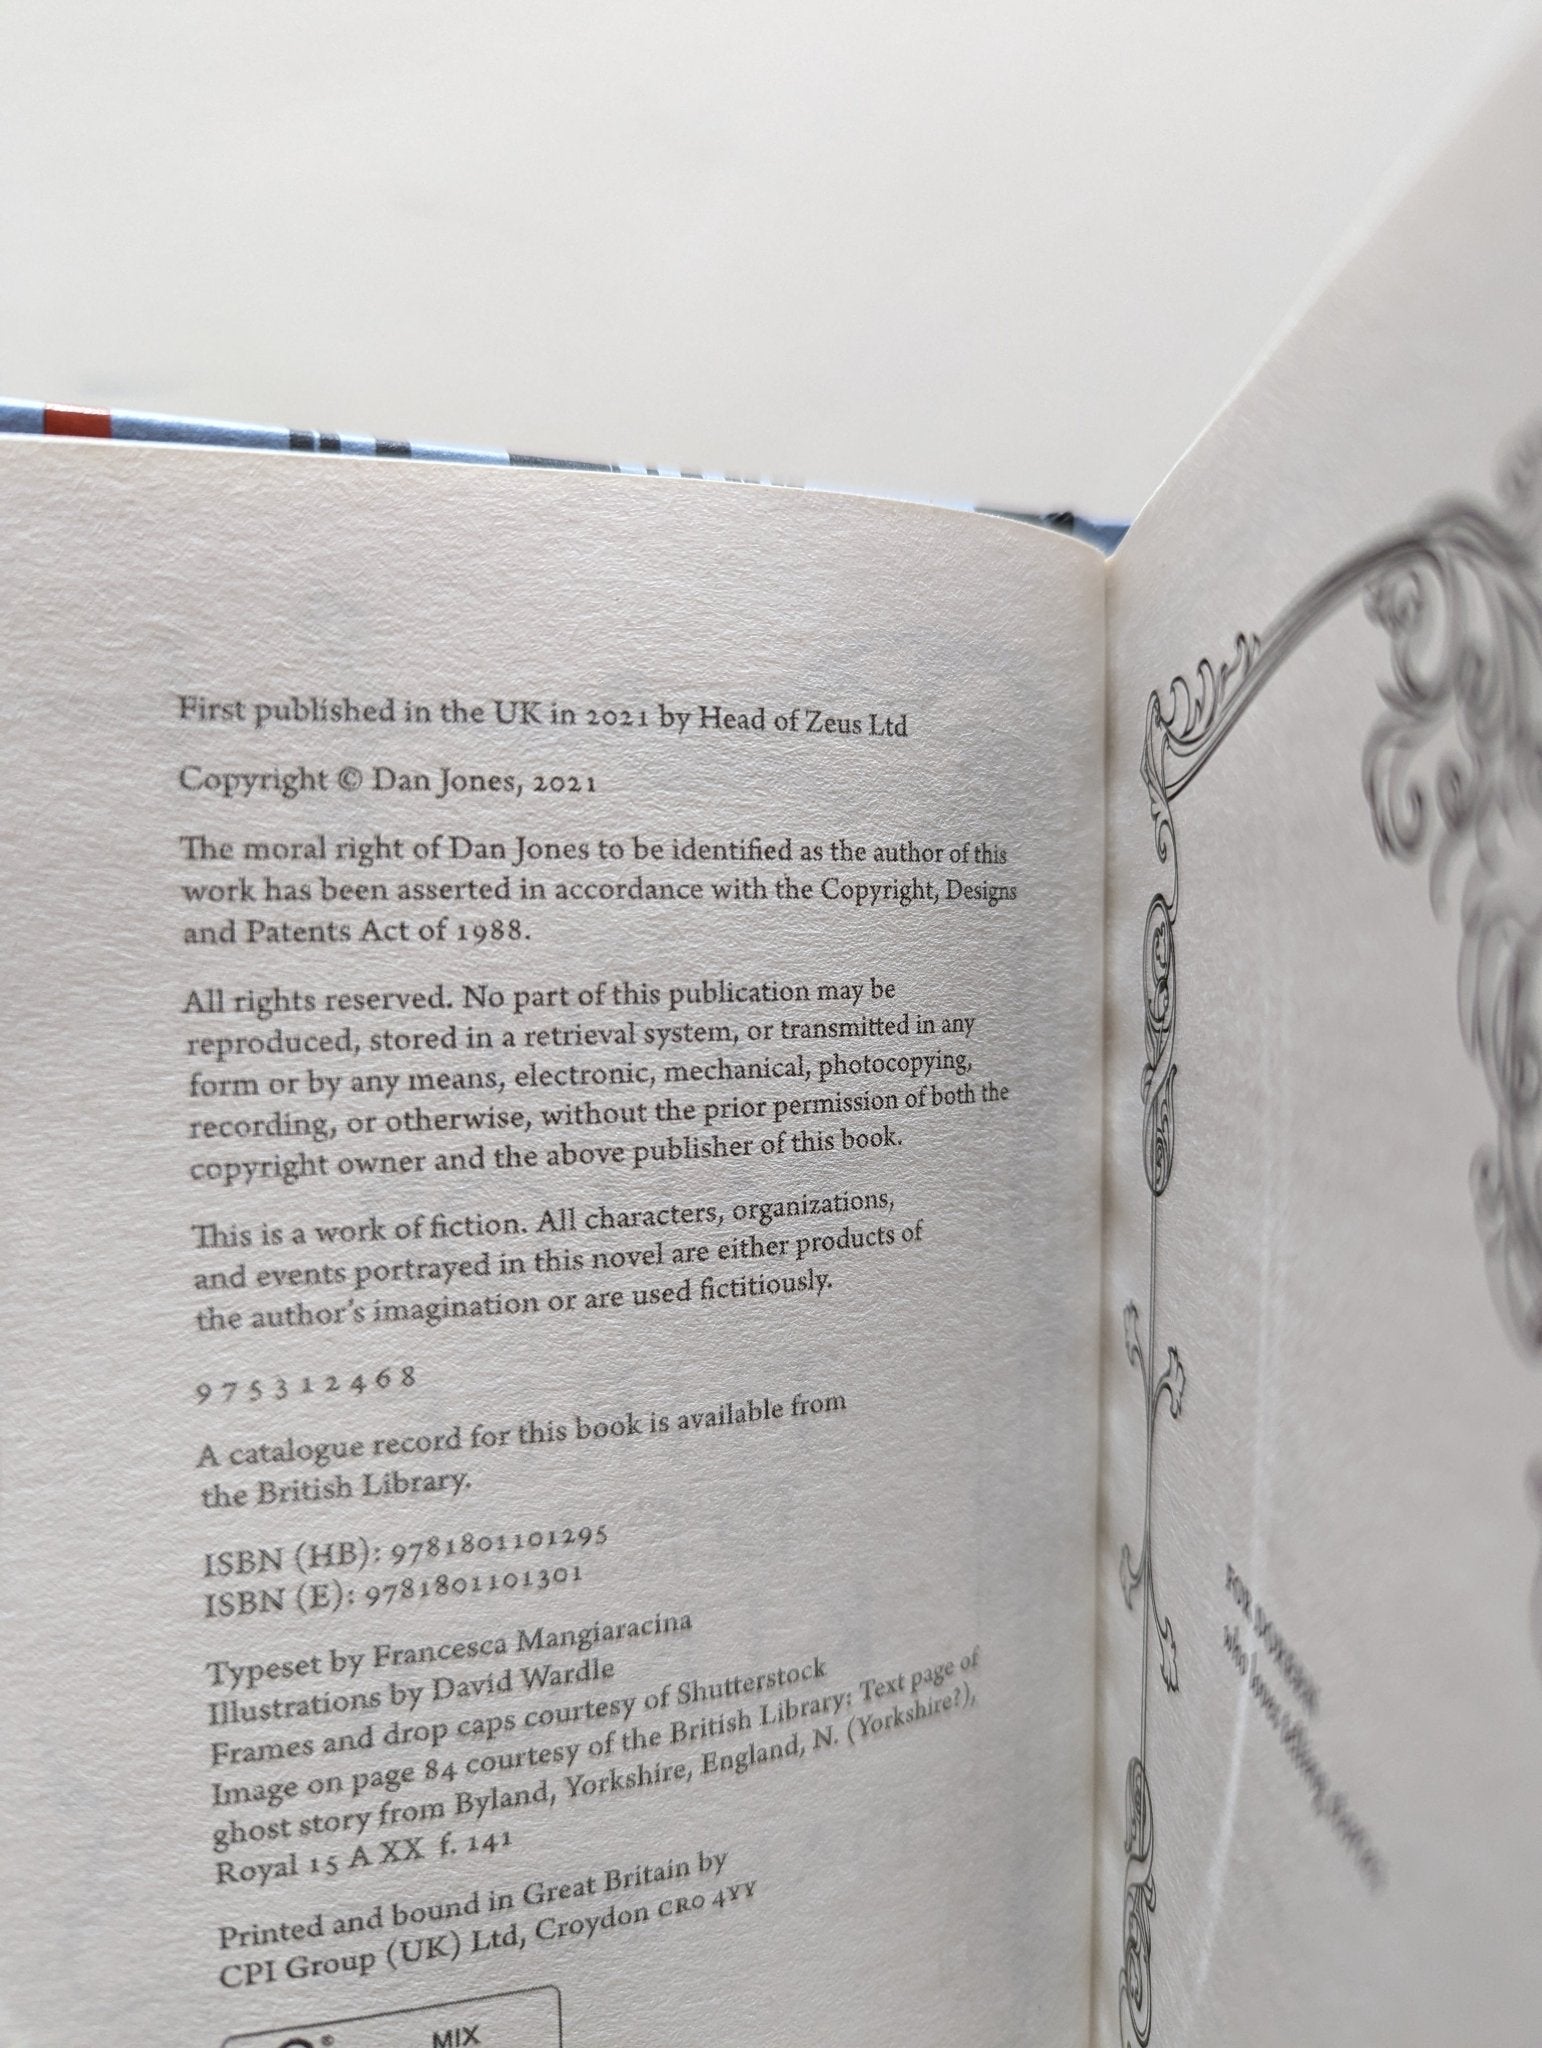 First published in the UK in 2021 by Head of Zeus Ltd
Copyright © Dan Jones, 2021
The moral right of Dan Jones to be identified as the author of this
work has been asserted in accordance with the Copyright, Designs
and Patents Act of 1988.
All rights reserved. No part of this publication may be
reproduced, stored in a retrieval system, or transmitted in any
form or by any means, electronic, mechanical, photocopying,
recording, or otherwise, without the prior permission of both the
copyright owner and the above publisher of this book.
This is a work of fiction. All characters, organizations,
and events portrayed in this novel are either products of
the author's imagination or are used fictitiously.
9 7 5 3 1 2 4 6 8
A catalogue record for this book is available from
the British Library.
ISBN (HB): 9781801101295
ISBN (E): 9781801101301
Typeset by Francesca Mangiaracina
Illustrations by David Wardle
Frames and drop caps courtesy of Shutterstock
Image on page 84 courtesy of the British Library: Text page of
ghost story from Byland, Yorkshire, England, N. (Yorkshire?),
Royal 15 A XX f. 141
Printed and bound in Great Britain by
CPI Group (UK) Ltd, Croydon CR0 4YY
MIX
FOR